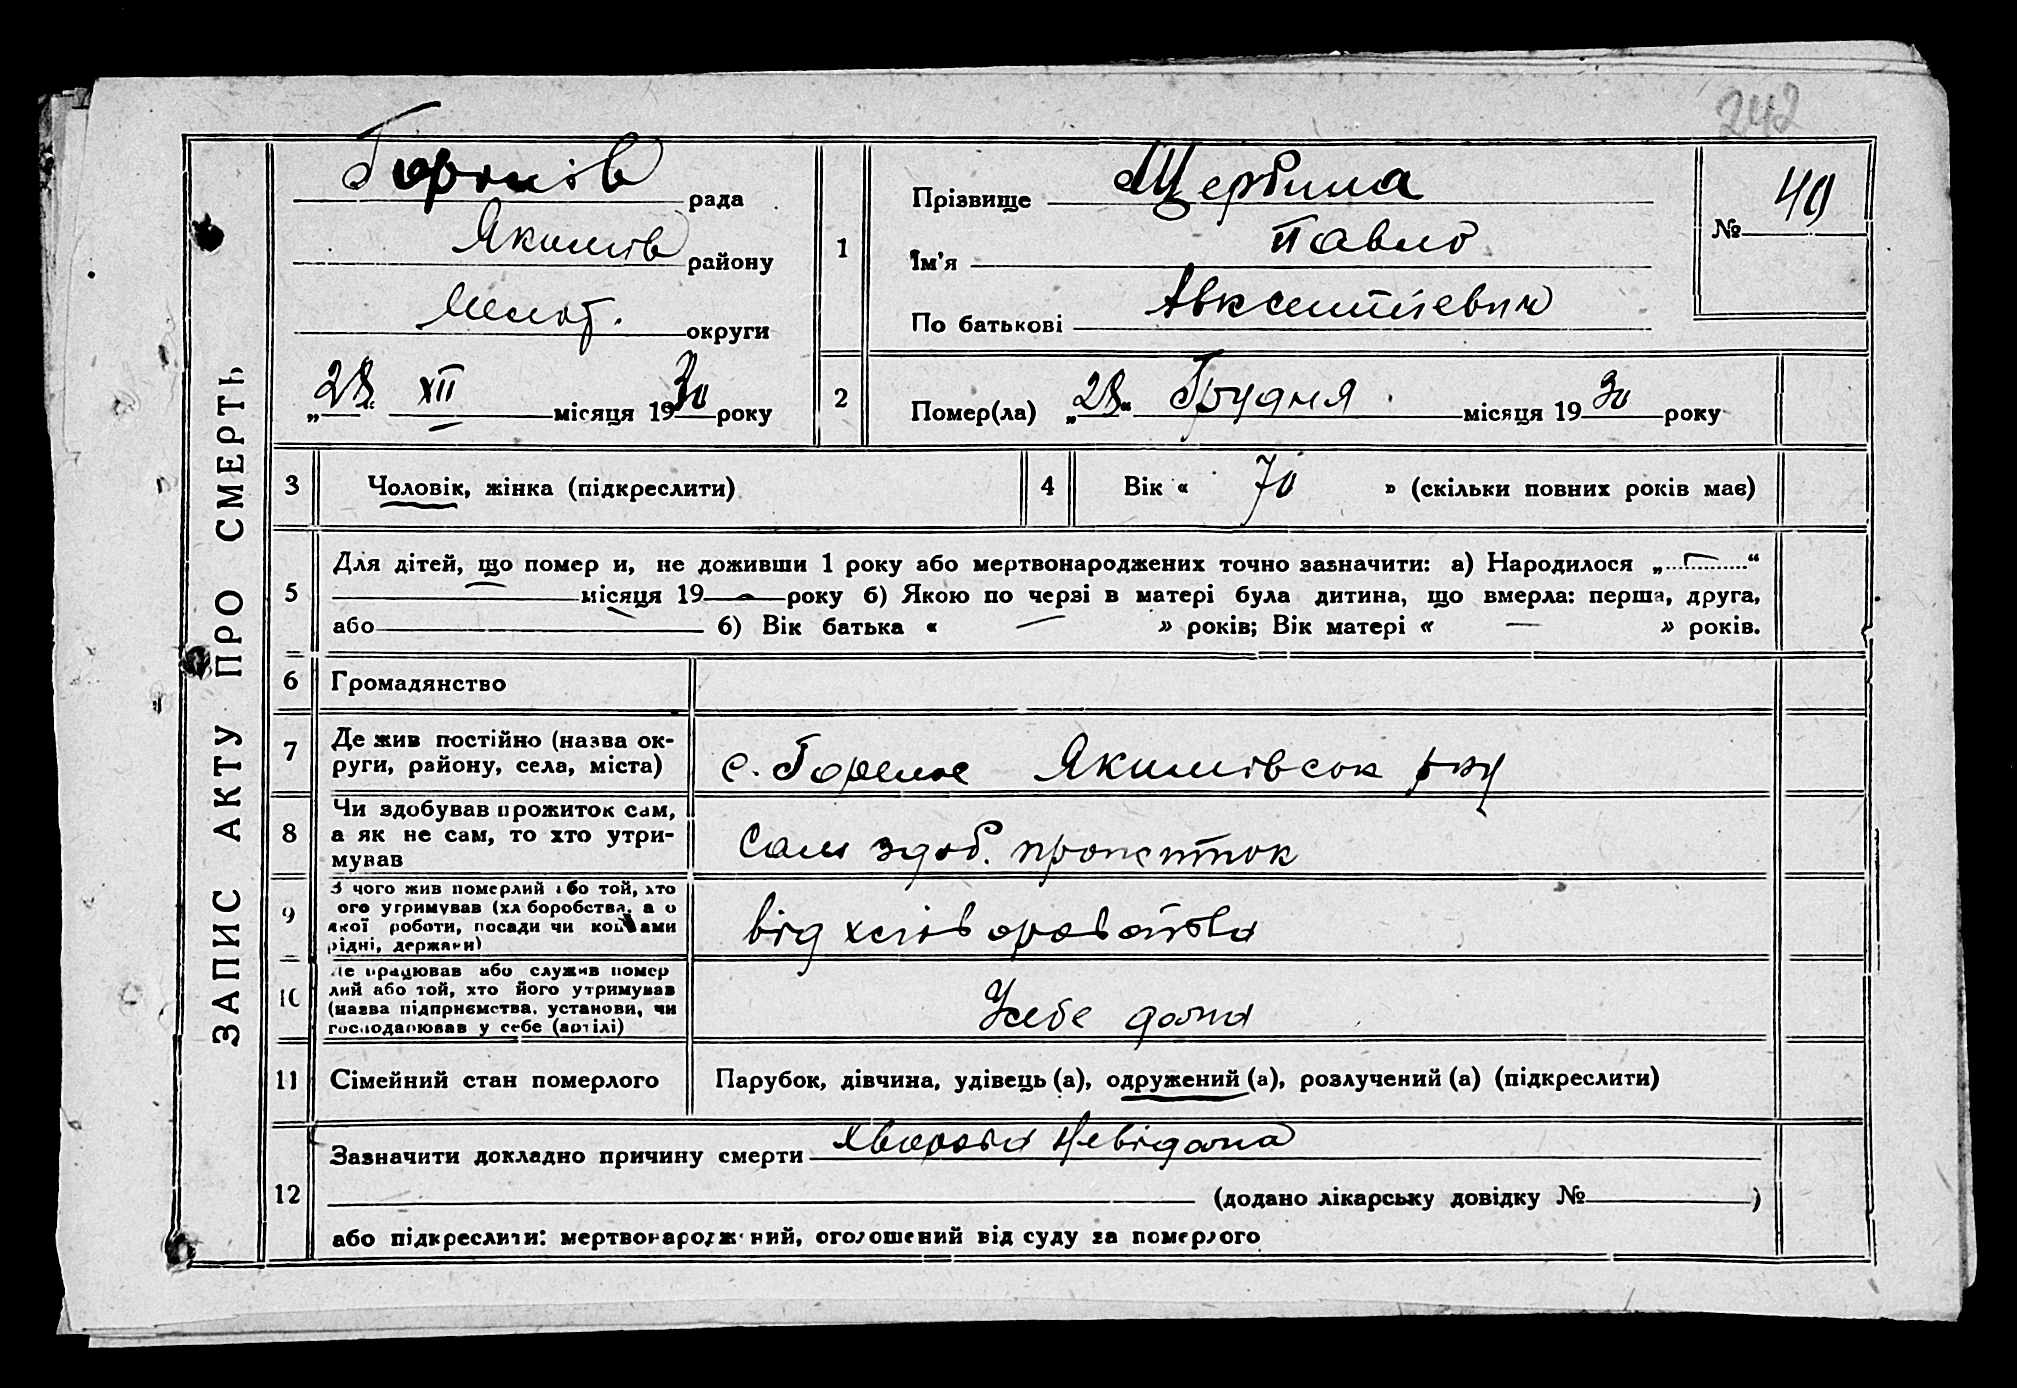 242
ЗАПИС АКТУ ПРО СМЕРТЬ
рада
Якимів району
Меліт. округи
„28“ XII місяця 1930 року
1
Прізвище Щербина
Ім'я Павло
По батькові Авксентієвич
№ 40
2
Помер(ла) „28“ Грудня місяця 1930 року
3
Чоловік, жінка (підкреслити)
4
Вік « 70 » (скільки повних років має)
5
Для дітей, що помер и, не доживши 1 року або мертвонароджених точно зазначити: а) Народилося „.........“
місяця 19 року б) Якою по черзі в матері була дитина, що вмерла: перша, друга,
або б) Вік батька « — » років; Вік матері « — » років.
6
Громадянство
7
Де жив постійно (назва ок-
руги, району, села, міста)
с. Якимівськ
8
Чи здобував прожиток сам,
а як не сам, то хто утри-
мував
Сам здоб. прожиток
9
З чого жив померлий або той, хто
ого утримував (хліборобства, а о
якої роботи, посади чи коштами
рідні, держави)
від хліборобства
10
Де працював або служив помер
лий або той, хто його утримував
(назва підприємства, установи, чи
господарював у себе (артілі)
У себе дома
11
Сімейний стан померлого
Парубок, дівчина, удівець (а), одружений (а), розлучений (а) (підкреслити)
12
Зазначити докладно причину смерти хвороба невідома
(додано лікарську довідку № )
або підкреслити: мертвонароджений, оголошений від суду за померлого